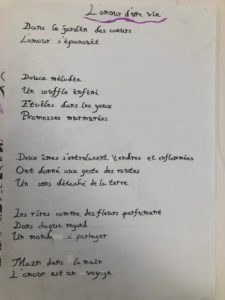 L'amour d'une vie
Dans le jardin des cœurs
L'amour s'épanouit
Douce mélodie
Un souffle infini
Etoiles dans les yeux
Promesses murmurées
Deux âmes s'entrelacent tendres et enflammées
Ont donné aux gestes des
Un sens détaché de la terre.
Les rires comme des fleurs parfument
Dans chaque regard
Un monde à partager
Main dans la main
L'amour est un voyage